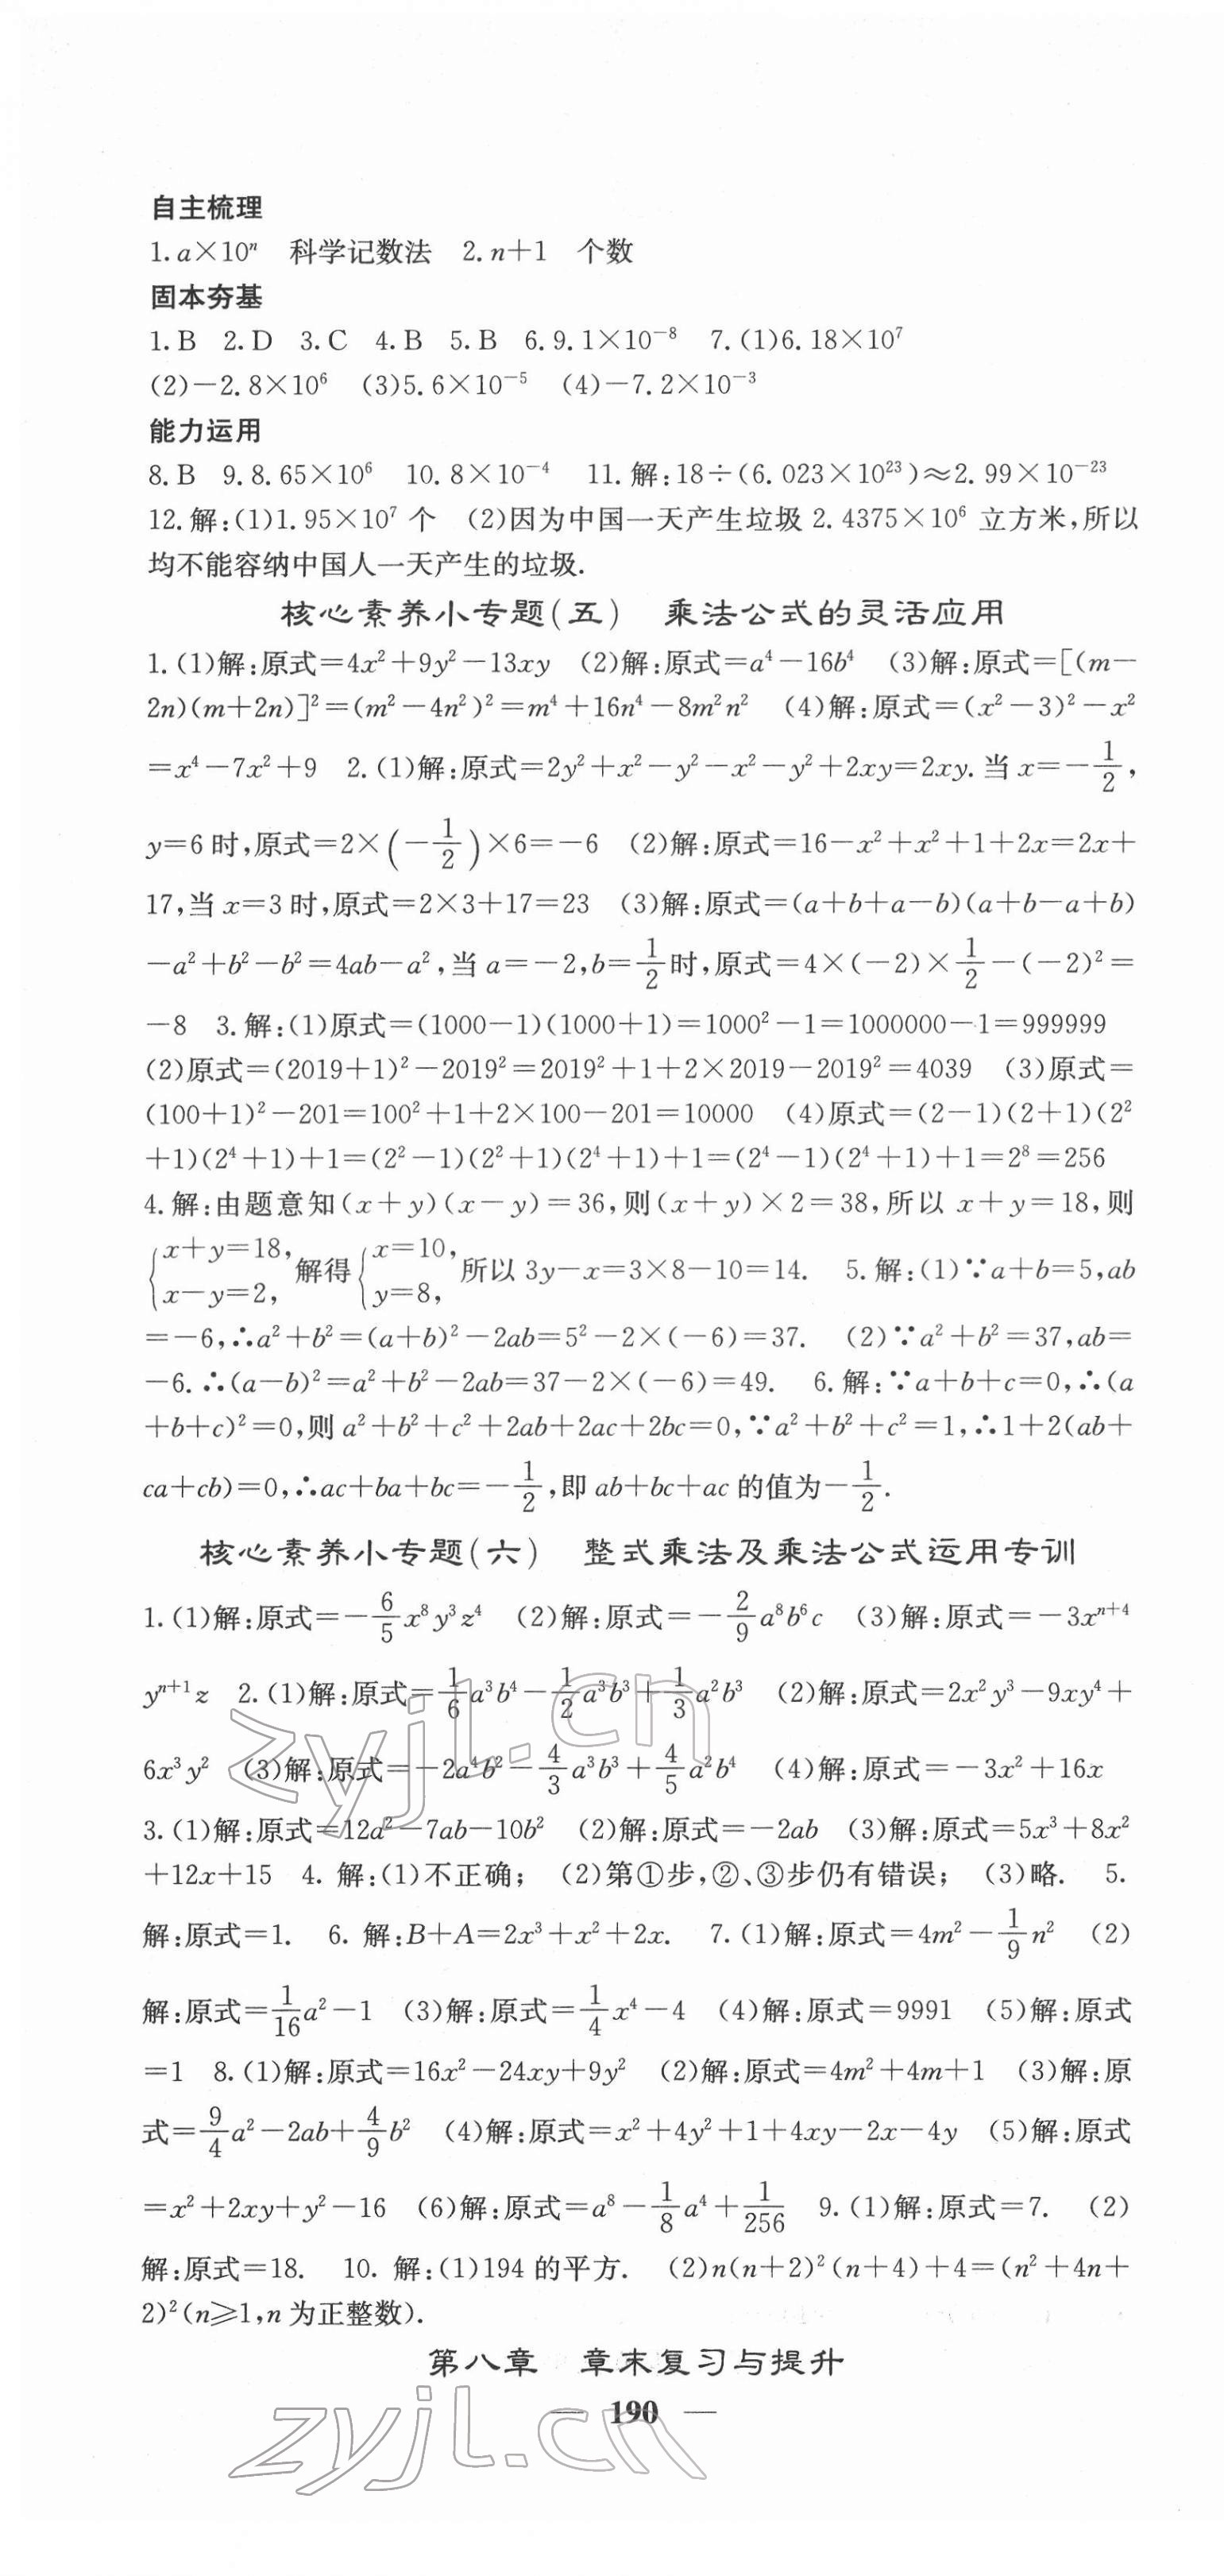 自主梳理
1. a×10ⁿ 科学记数法 2. n+1 个数
固本夯基
1. B 2. D 3. C 4. B 5. B 6. 9. 1×10⁻⁸ 7. (1)6. 18×10⁷
(2)−2. 8×10⁶ (3)5. 6×10⁻⁵ (4)−7. 2×10⁻³
能力运用
8. B 9. 8. 65×10⁶ 10. 8×10⁻⁴ 11. 解:18÷(6. 023×10²³)≈2. 99×10⁻²³
12. 解:(1)1. 95×10⁷ 个 (2)因为中国一天产生垃圾 2. 4375×10⁶ 立方米,所以
均不能容纳中国人一天产生的垃圾.
核心素养小专题(五) 乘法公式的灵活应用
1. (1)解:原式=4x²+9y²−13xy (2)解:原式=a⁴−16b⁴ (3)解:原式=[(m−
2n)(m+2n)]²=(m²−4n²)²=m⁴+16n⁴−8m²n² (4)解:原式=(x²−3)²−x²
=x⁴−7x²+9 2. (1)解:原式=2y²+x²−y²−x²−y²+2xy=2xy. 当 x=−1/2,
y=6 时,原式=2×(−1/2)×6=−6 (2)解:原式=16−x²+x²+1+2x=2x+
17,当 x=3 时,原式=2×3+17=23 (3)解:原式=(a+b+a−b)(a+b−a+b)
−a²+b²−b²=4ab−a²,当 a=−2,b=1/2时,原式=4×(−2)×1/2−(−2)²=
−8 3. 解:(1)原式=(1000−1)(1000+1)=1000²−1=1000000−1=999999
(2)原式=(2019+1)²−2019²=2019²+1+2×2019−2019²=4039 (3)原式=
(100+1)²−201=100²+1+2×100−201=10000 (4)原式=(2−1)(2+1)(2²
+1)(2⁴+1)+1=(2²−1)(2²+1)(2⁴+1)+1=(2⁴−1)(2⁴+1)+1=2⁸=256
4. 解:由题意知(x+y)(x−y)=36,则(x+y)×2=38,所以 x+y=18,则
{x+y=18, x−y=2, 解得{x=10, y=8, 所以 3y−x=3×8−10=14. 5. 解:(1)∵a+b=5,ab
=−6,∴a²+b²=(a+b)²−2ab=5²−2×(−6)=37. (2)∵a²+b²=37,ab=
−6. ∴(a−b)²=a²+b²−2ab=37−2×(−6)=49. 6. 解:∵a+b+c=0,∴(a
+b+c)²=0,则 a²+b²+c²+2ab+2ac+2bc=0,∵a²+b²+c²=1,∴1+2(ab+
ca+cb)=0,∴ac+ba+bc=−1/2,即 ab+bc+ac 的值为−1/2.
核心素养小专题(六) 整式乘法及乘法公式运用专训
1. (1)解:原式=−6/5x⁸y³z⁴ (2)解:原式=−2/9a⁸b⁶c (3)解:原式=−3xⁿ⁺⁴
yⁿ⁺¹z 2. (1)解:原式=1/6a³b⁴−1/2a³b³+1/3a²b³ (2)解:原式=2x²y³−9xy⁴+
6x³y² (3)解:原式=−2a⁴b²−4/3a³b³+4/5a²b⁴ (4)解:原式=−3x²+16x
3. (1)解:原式=12a²−7ab−10b² (2)解:原式=−2ab (3)解:原式=5x³+8x²
+12x+15 4. 解:(1)不正确; (2)第①步,②、③步仍有错误; (3)略. 5.
解:原式=1. 6. 解:B+A=2x³+x²+2x. 7. (1)解:原式=4m²−1/9n² (2)
解:原式=1/16a²−1 (3)解:原式=1/4x⁴−4 (4)解:原式=9991 (5)解:原式
=1 8. (1)解:原式=16x²−24xy+9y² (2)解:原式=4m²+4m+1 (3)解:原
式=9/4a²−2ab+4/9b² (4)解:原式=x²+4y²+1+4xy−2x−4y (5)解:原式
=x²+2xy+y²−16 (6)解:原式=a⁸−1/8a⁴+1/256 9. (1)解:原式=7. (2)
解:原式=18. 10. 解:(1)194 的平方. (2)n(n+2)²(n+4)+4=(n²+4n+
2)²(n⩾1,n 为正整数).
第八章 章末复习与提升
— 190 —
zyjl.cn
zyjl.cn